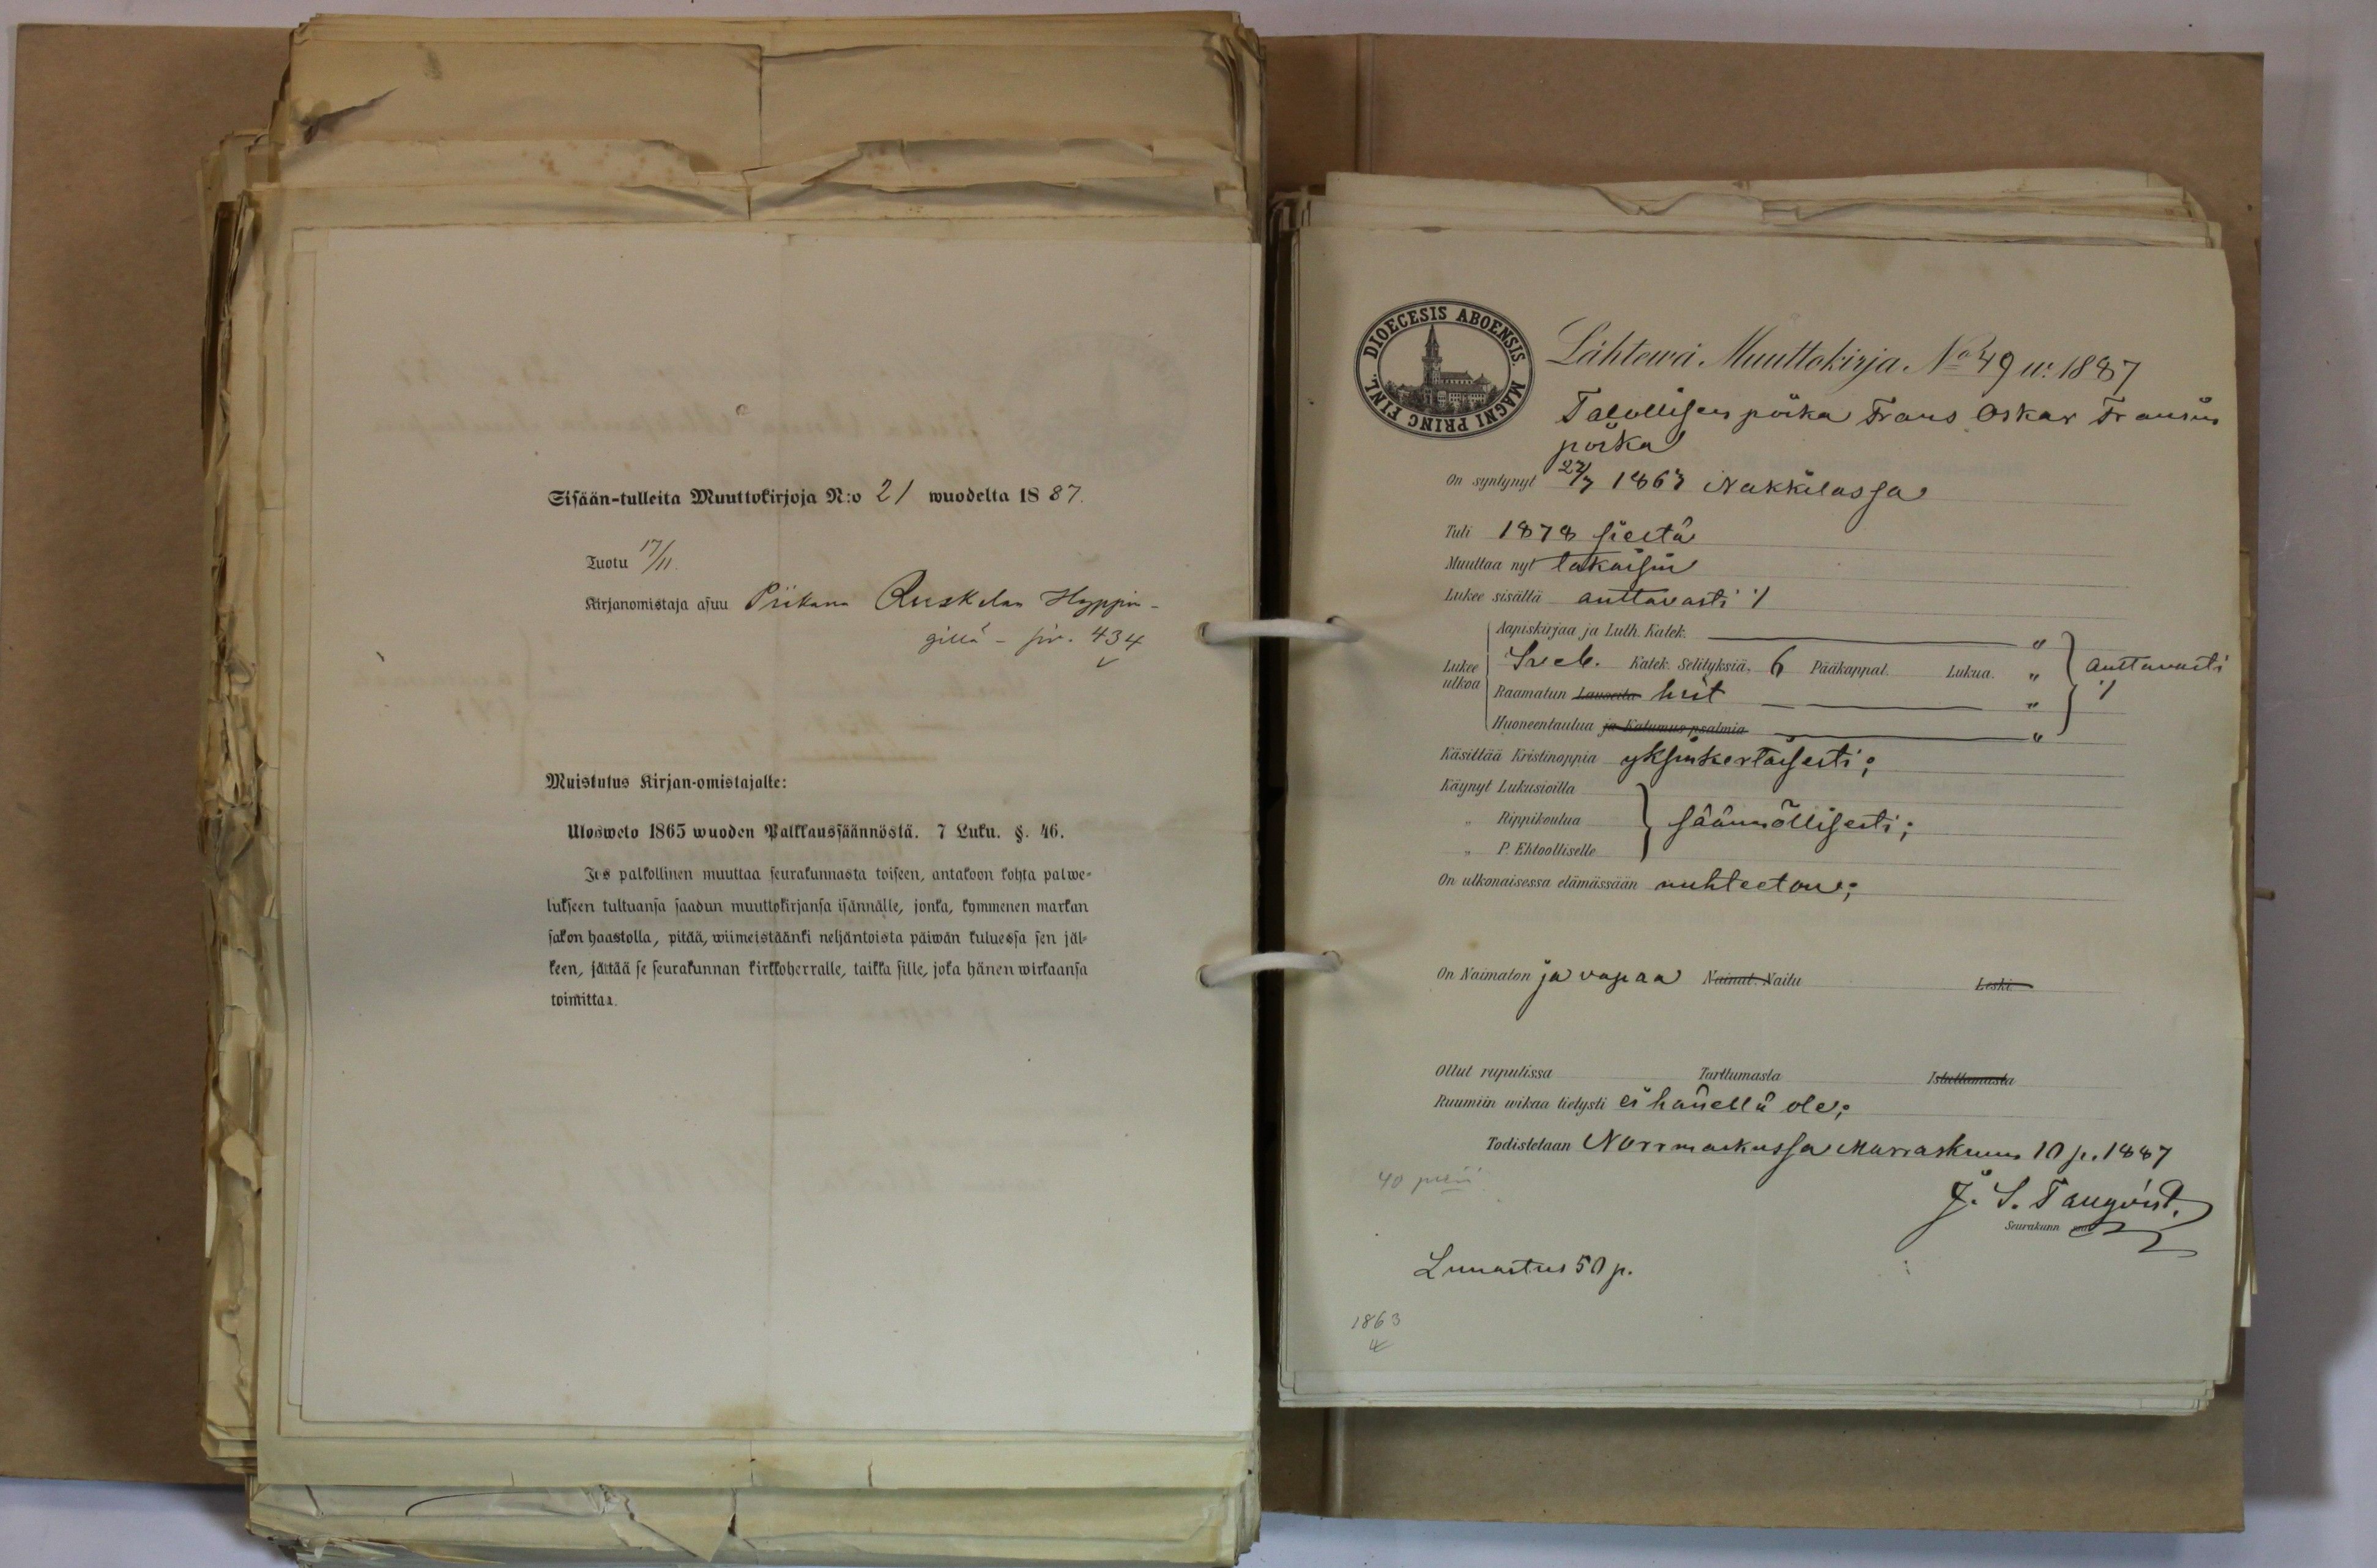 Sisään-tulleita Muuttokirjoja N:o 21 wuodelta 1887.
Tuotu 17/11.
Kirjanomistaja asuu Piikana Ruskelan Hyppin-
gillä - siv. 434
Muistutus Kirjan-omistajalle:
Ulosweto 1865 wuoden Palkkaussäännöstä. 7 Luku. §. 46.
Jos palkollinen muuttaa seurakunnasta toiseen, antakoon kohta palwe-
lukseen tultuansa saadun muuttokirjansa isännälle, jonka, kymmenen markan
sakon haastolla, pitää, wiimeistäänki neljäntoista päiwän kuluessa sen jäl-
keen, jättää se seurakunnan kirkkoherralle, taikka sille, joka hänen wirkaansa
toimittaa.
DIOECESIS ABOENSIS. MAGNI PRINC FINL.
Lähtewä Muuttokirja. No 49 w: 1887
Talollisen poika Frans Oskar Fransin
poika
On syntynyt 27/7 1863 Nakkilassa
Tuli 1878 sieltä
Muuttaa nyt takaisin
Lukee sisältä auttavasti ·/
Aapiskirjaa ja Luth. Katek. "
Lukee ulkoa Sveb. Katek. Selityksiä, 6 Pääkappal. Lukua. " auttavasti
Raamatun Lauseita hist " ·/
Huoneentaulua ja Katumus psalmia "
Käsittää Kristinoppia yksinkertaisesti;
Käynyt Lukusioilla
" Rippikoulua säännöllisesti;
" P. Ehtoolliselle
On ulkonaisessa elämässään nuhteeton;
On Naimaton ja vapaa Naimat. Naitu Leski
Ollut rupulissa Tarttumasta Istuttamasta
Ruumiin wikaa tietysti ei hänellä ole;
Todistetaan Norrmarkussa Marraskuun 10 p. 1887
40 pnii
J. S. Tanqvist.
Seurakunn
Lunastus 50 p.
1863